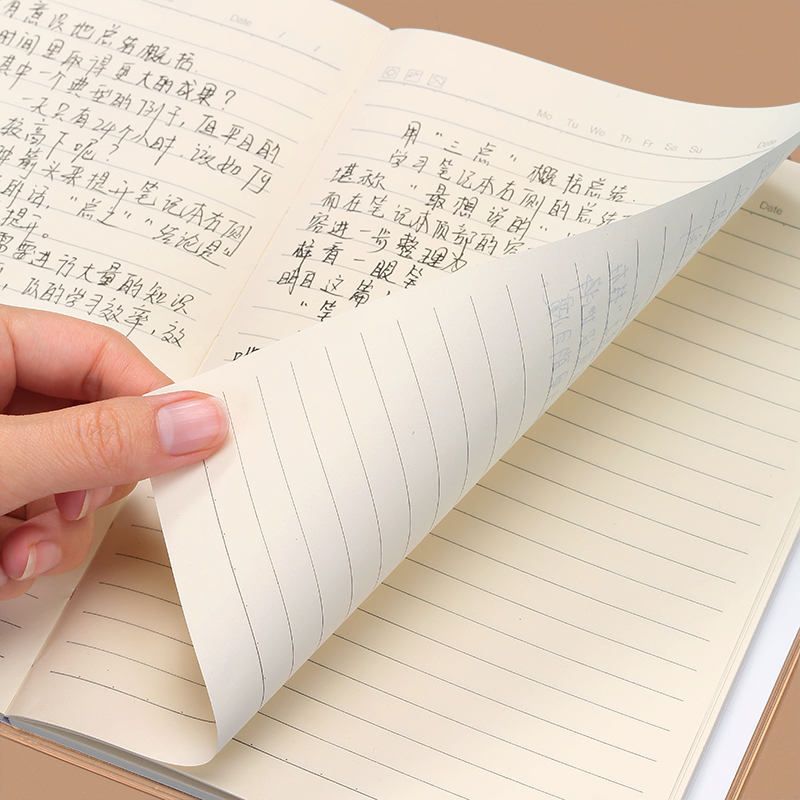 Date / /
有意识地总结概括
时间里取得更大的成果?
其中一个典型的例子,值平日的
一天只有24个小时,该如何
较高下呢?
箭头来提升笔记本右侧
用语,"总之""结论是"
提示。
需要进行大量的知识
,你的学习效率,效
Mo Tu We Th Fr Sa Su
Date
用"三点"概括总结.
学习笔记本右侧的总结
堪称"最想说的"
而在笔记本顶部的
容进一步整理为
样看一眼笔
明白这篇,
"笔
Date